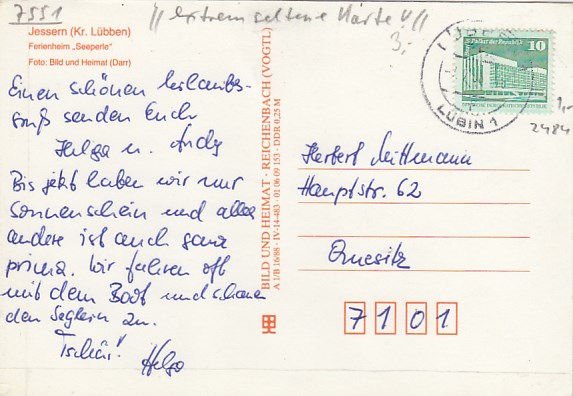 7551
// extrem seltene Karte! //
3,-
Jessern (Kr. Lübben)
Ferienheim „Seeperle"
Foto: Bild und Heimat (Darr)
Einen schönen Urlaubs-
gruß senden Euch
Helga u. Andy
Bis jetzt haben wir nur
Sonnenschein und alles
andere ist auch ganz
prima. Wir fahren oft
mit dem Boot und schauen
den Seglern zu.
Tschüß!
Helga
BILD UND HEIMAT · REICHENBACH (VOGTL)
A 1/B 16/88 · IV-14-483 · 01 06 09 153 · DDR 0,25 M
Palast der Republik
10
DEUTSCHE DEMOKRATISCHE REPUBLIK
LÜBBEN 1
LUBIN 1
1,-
2484
Herbert Mittmann
Hauptstr. 62
Quesitz
7101